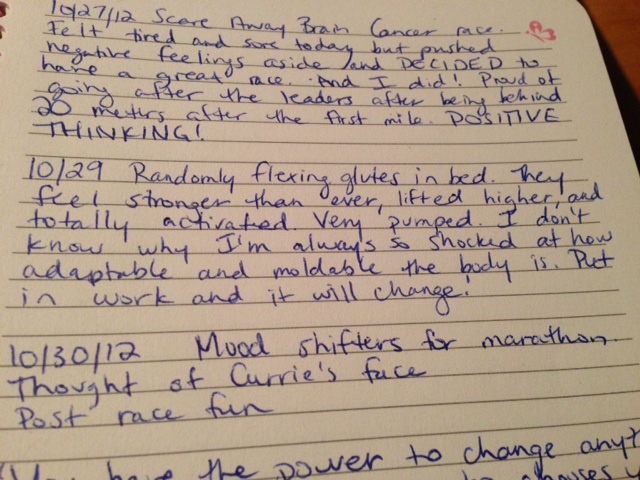 10/27/12 Scare Away Brain Cancer race.
Felt tired and sore today but pushed
negative feelings aside and DECIDED to
have a great race. And I did! Proud of
going after the leaders after being behind
20 meters after the first mile. POSITIVE
THINKING!
10/29 Randomly flexing glutes in bed. They
feel stronger than ever, lifted higher, and
totally activated. Very pumped. I don't
know why I'm always so shocked at how
adaptable and moldable the body is. Put
in work and it will change!
10/30/12 Mood shifters for marathon.
Thought of Currie's face
Post race fun
have the power to change